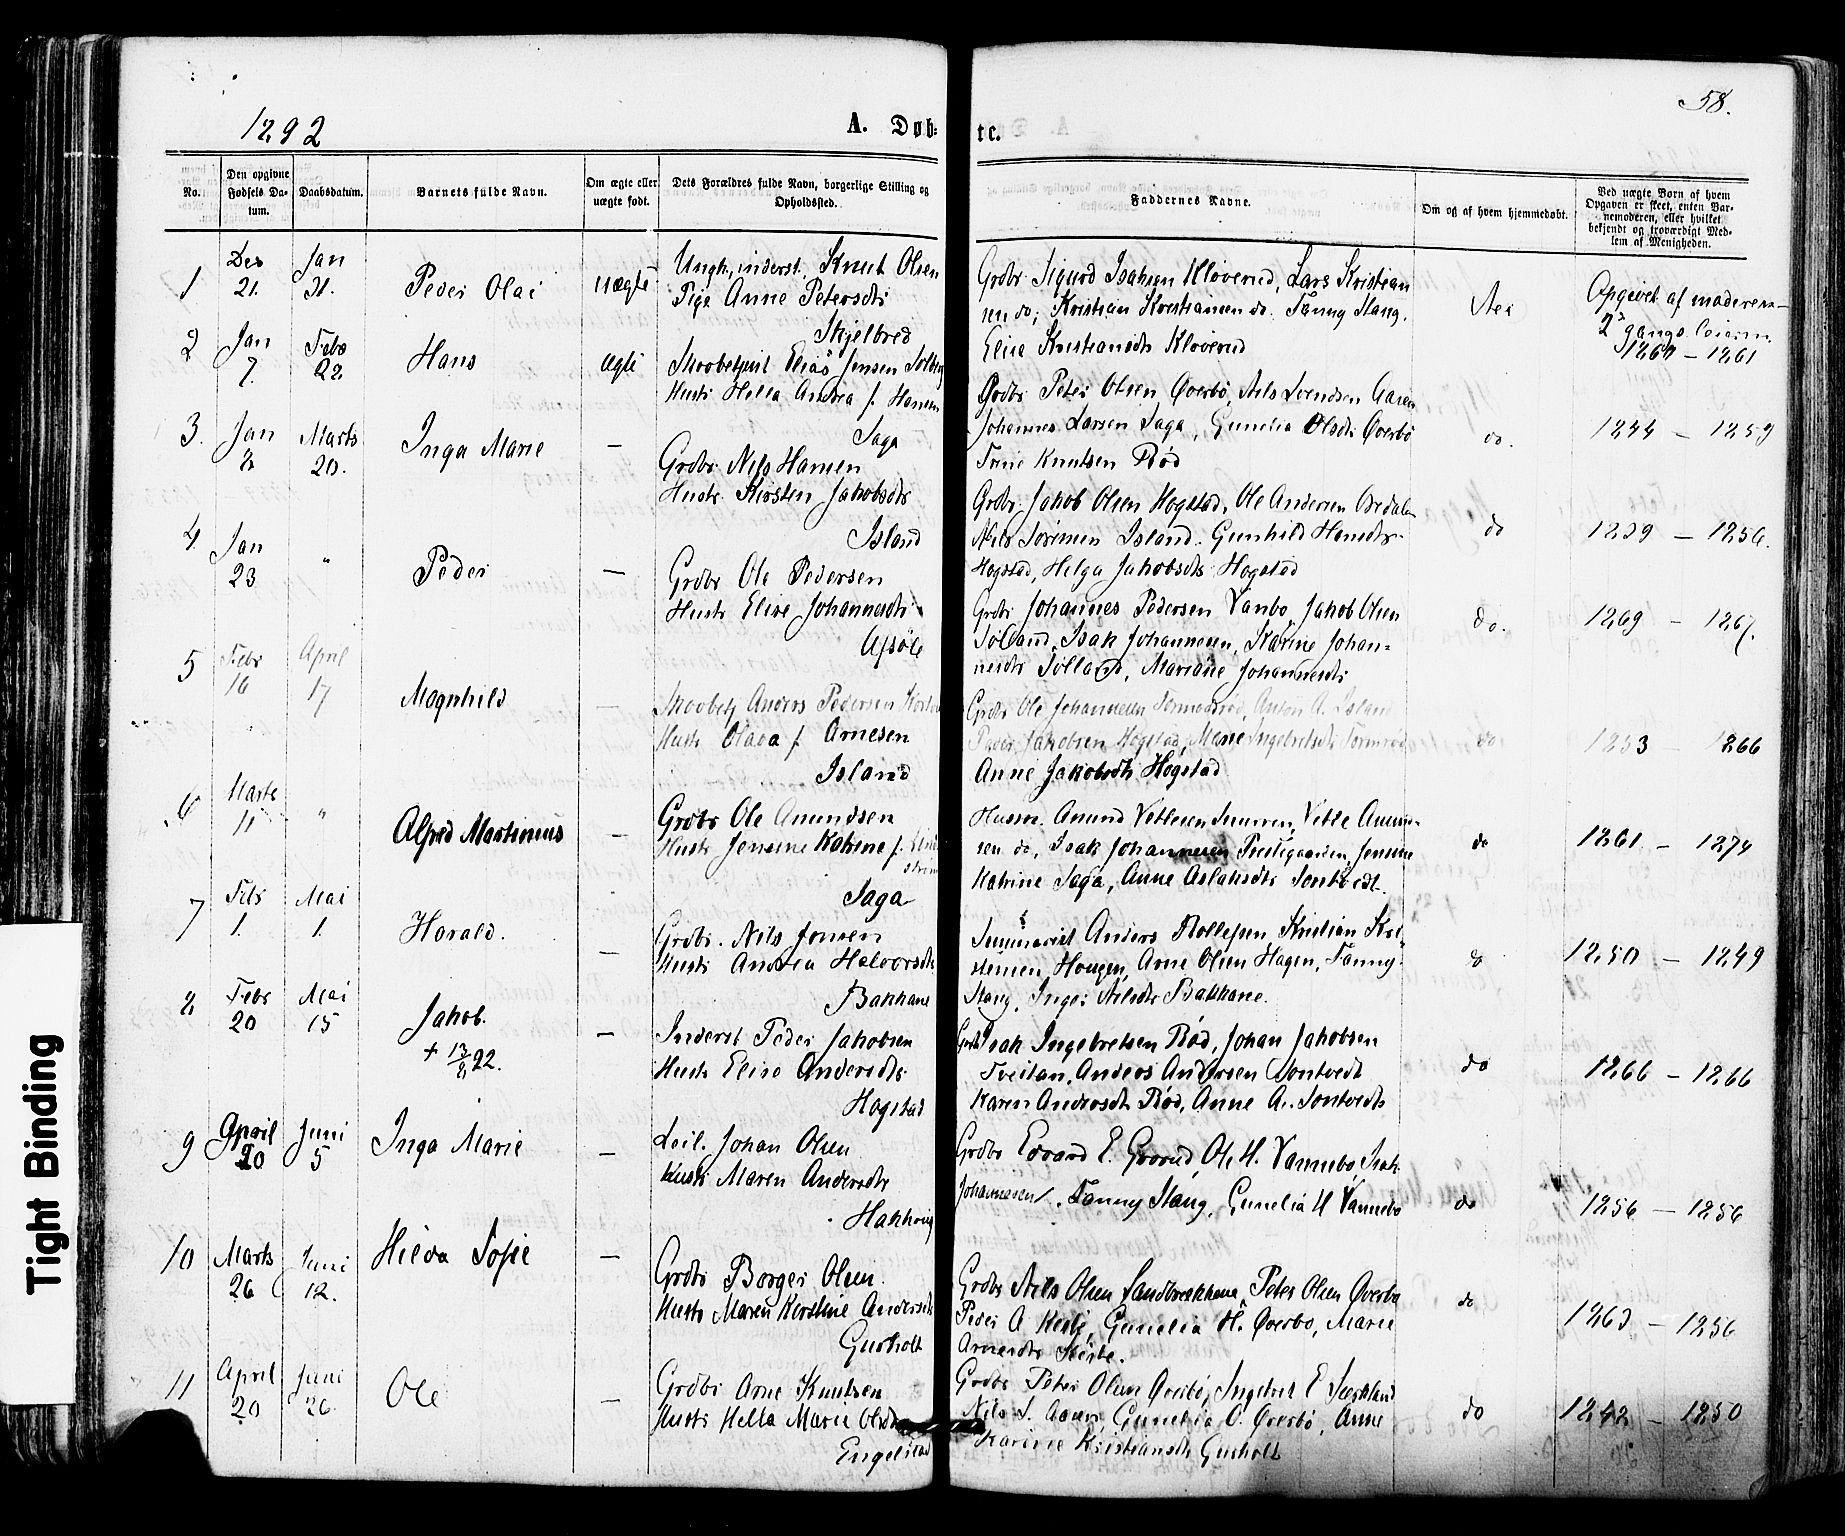 58.
1892
A. Døb-
te.
No.
Den opgivne Fødsels Datum.
Daabsdatum.
Barnets fulde Navn.
Om ægte eller uægte født.
Dets Forældres fulde Navn, borgerlige Stilling og Opholdssted.
Faddernes Navne.
Om og af hvem hjemmedøbt.
Ved uægte Børn af hvem Opgaven er skeet, enten Barnemoderen, eller hvilket bekjendt og troværdigt Medlem af Menigheden.
1
Des 21.
Jan 31.
Peder Olai
uægte
Ungk, inderst, Knut Olsen
Pige Anne Petersdtr
Skjelbred
Grdbr Sigurd Isaksen Kløverud, Lars Kristian
sen do, Kristian Kristiansen do. Fanny Stang,
Elise Kristiansdtr Kløverud
Nei
Opgivet af moderen
2 gangs leierm.
1867 - 1861
2
Jan 7.
Febr 22
Hans
ægte
Elias Jensen Solberg
Hustr Hella Andrea f. Hansen
Saga
Grdbr Peter Olsen Øverbø, Nils Svendsen Aasen
Johannes Larsen Saga, Gunelia Olsdtr Øverbø
Trine Knutsen Rød
do.
1844 - 1859
3.
Jan 2
Marts 20.
Inga Marie
—
Grdbr Nils Hansen
Hustr. Kirsten Jakobsdtr
Island
Grdbr. Jakob Olsen Hogstad, Ole Andersen
Nils Sørensen Island. Gunhild Hansdtr
Hogstad, Helga Jakobsdtr Hogstad
do
1839 - 1856.
4.
Jan 23
"
Peder
—
Grdbr Ole Pedersen
Hustr Elise Johannesdtr
Grdbr Johannes Pedersen Vanbo, Jakob Olsen
Isak Johannesen, Karine Johan-
nesdtr Mariane Johannesdtr
do.
1869 - 1867.
5
Febr 16
April 17
Magnhild
—
Anders Pedersen
Hustr Olava f. Arnesen
Island
Grdbr Ole Johannesen Anton A. Island
Peder Jakobsen Hogstad, Marie Ingebretsdtr
Anne Jakobsdtr Hogstad
do
1853 - 1866
6
Marts 11
"
Alfred Martinius
—
Grdbr Ole Amundsen
Hustr Jensine Katrine f.
Saga
Husm. Amund Vetlesen Vetle Amund-
sen do, Isak Johannesen Prestegaarden, Jensine
Katrine Saga, Anne Aslaksdtr Sontvedt.
do
1861 - 1874
7
Febr 1.
Mai 1.
Harald.
—
Grdbr. Nils Jonsen
Hustr Andrea Halvorsdtr
Bakkane
Seminarist Anders Rollefsen Kristian Kri-
stensen Hougen, Arne Olsen Hagen, Fanny
Stang, Inger Nilsdtr Bakkane.
do
1850 - 1849
8
Febr 20
Mai 15
Jakob.
+ 13/8 92.
—
Inderst Peder Jakobsen
Hustr Elise Andersdtr
Hogstad
Grdbr Isak Ingebretsen Rød, Johan Jakobsen
Tveitan, Anders Andersen Sontvedt
Karen Andersdtr Rød, Anne A. Sontvedt
do
1866 - 1866
9
April 20
Juni 5
Inga Marie
—
Leil. Johan Olsen
Hustr Maren Andersdtr
Grdbr Edvard E. Grorud, Ole H. Vannebo, Isak
Johannesen, Fanny Stang, Gunelia H Vannebo
do
1856 - 1856
10
Marts 26
Juni 12.
Hilda Sofie
—
Grdbr Borger Olsen.
Hustr Maren Kirstine Andersdtr
Gusholt
Grdbr Nils Olsen Peter Olsen Øverbø
Peder A. Gunelia H. Øverbø, Marie
do
1863 - 1856
11
April 20
Juni 26.
Ole
—
Grdbr Arne Knutsen
Hustr Hella Marie Olsdtr
Engelstad
Grdbr Peter Olsen Øverbø, Ingebret E
Nils S. Aasen, Gunelia O. Øverbø, Anne
Karine Kristiansdtr Gusholt
do
1842 - 1850
Tight Binding